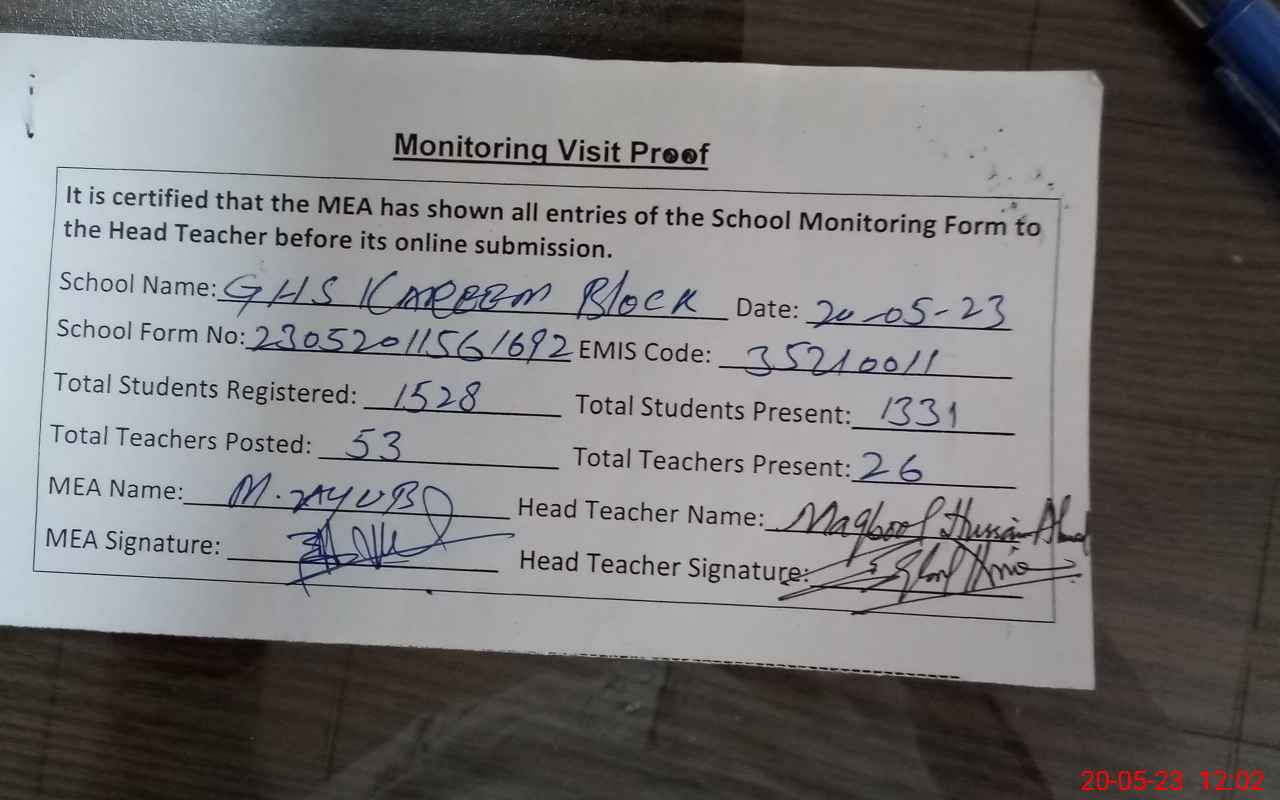 Monitoring Visit Proof
It is certified that the MEA has shown all entries of the School Monitoring Form to
the Head Teacher before its online submission.
School Name: GHS KAREEM Block Date: 20-05-23
School Form No: 23052011561692 EMIS Code: 35210011
Total Students Registered: 1528 Total Students Present: 1331
Total Teachers Posted: 53 Total Teachers Present: 26
MEA Name: M. Head Teacher Name: Maqbool Hussain
MEA Signature: Head Teacher Signature:
20-05-23 12:02